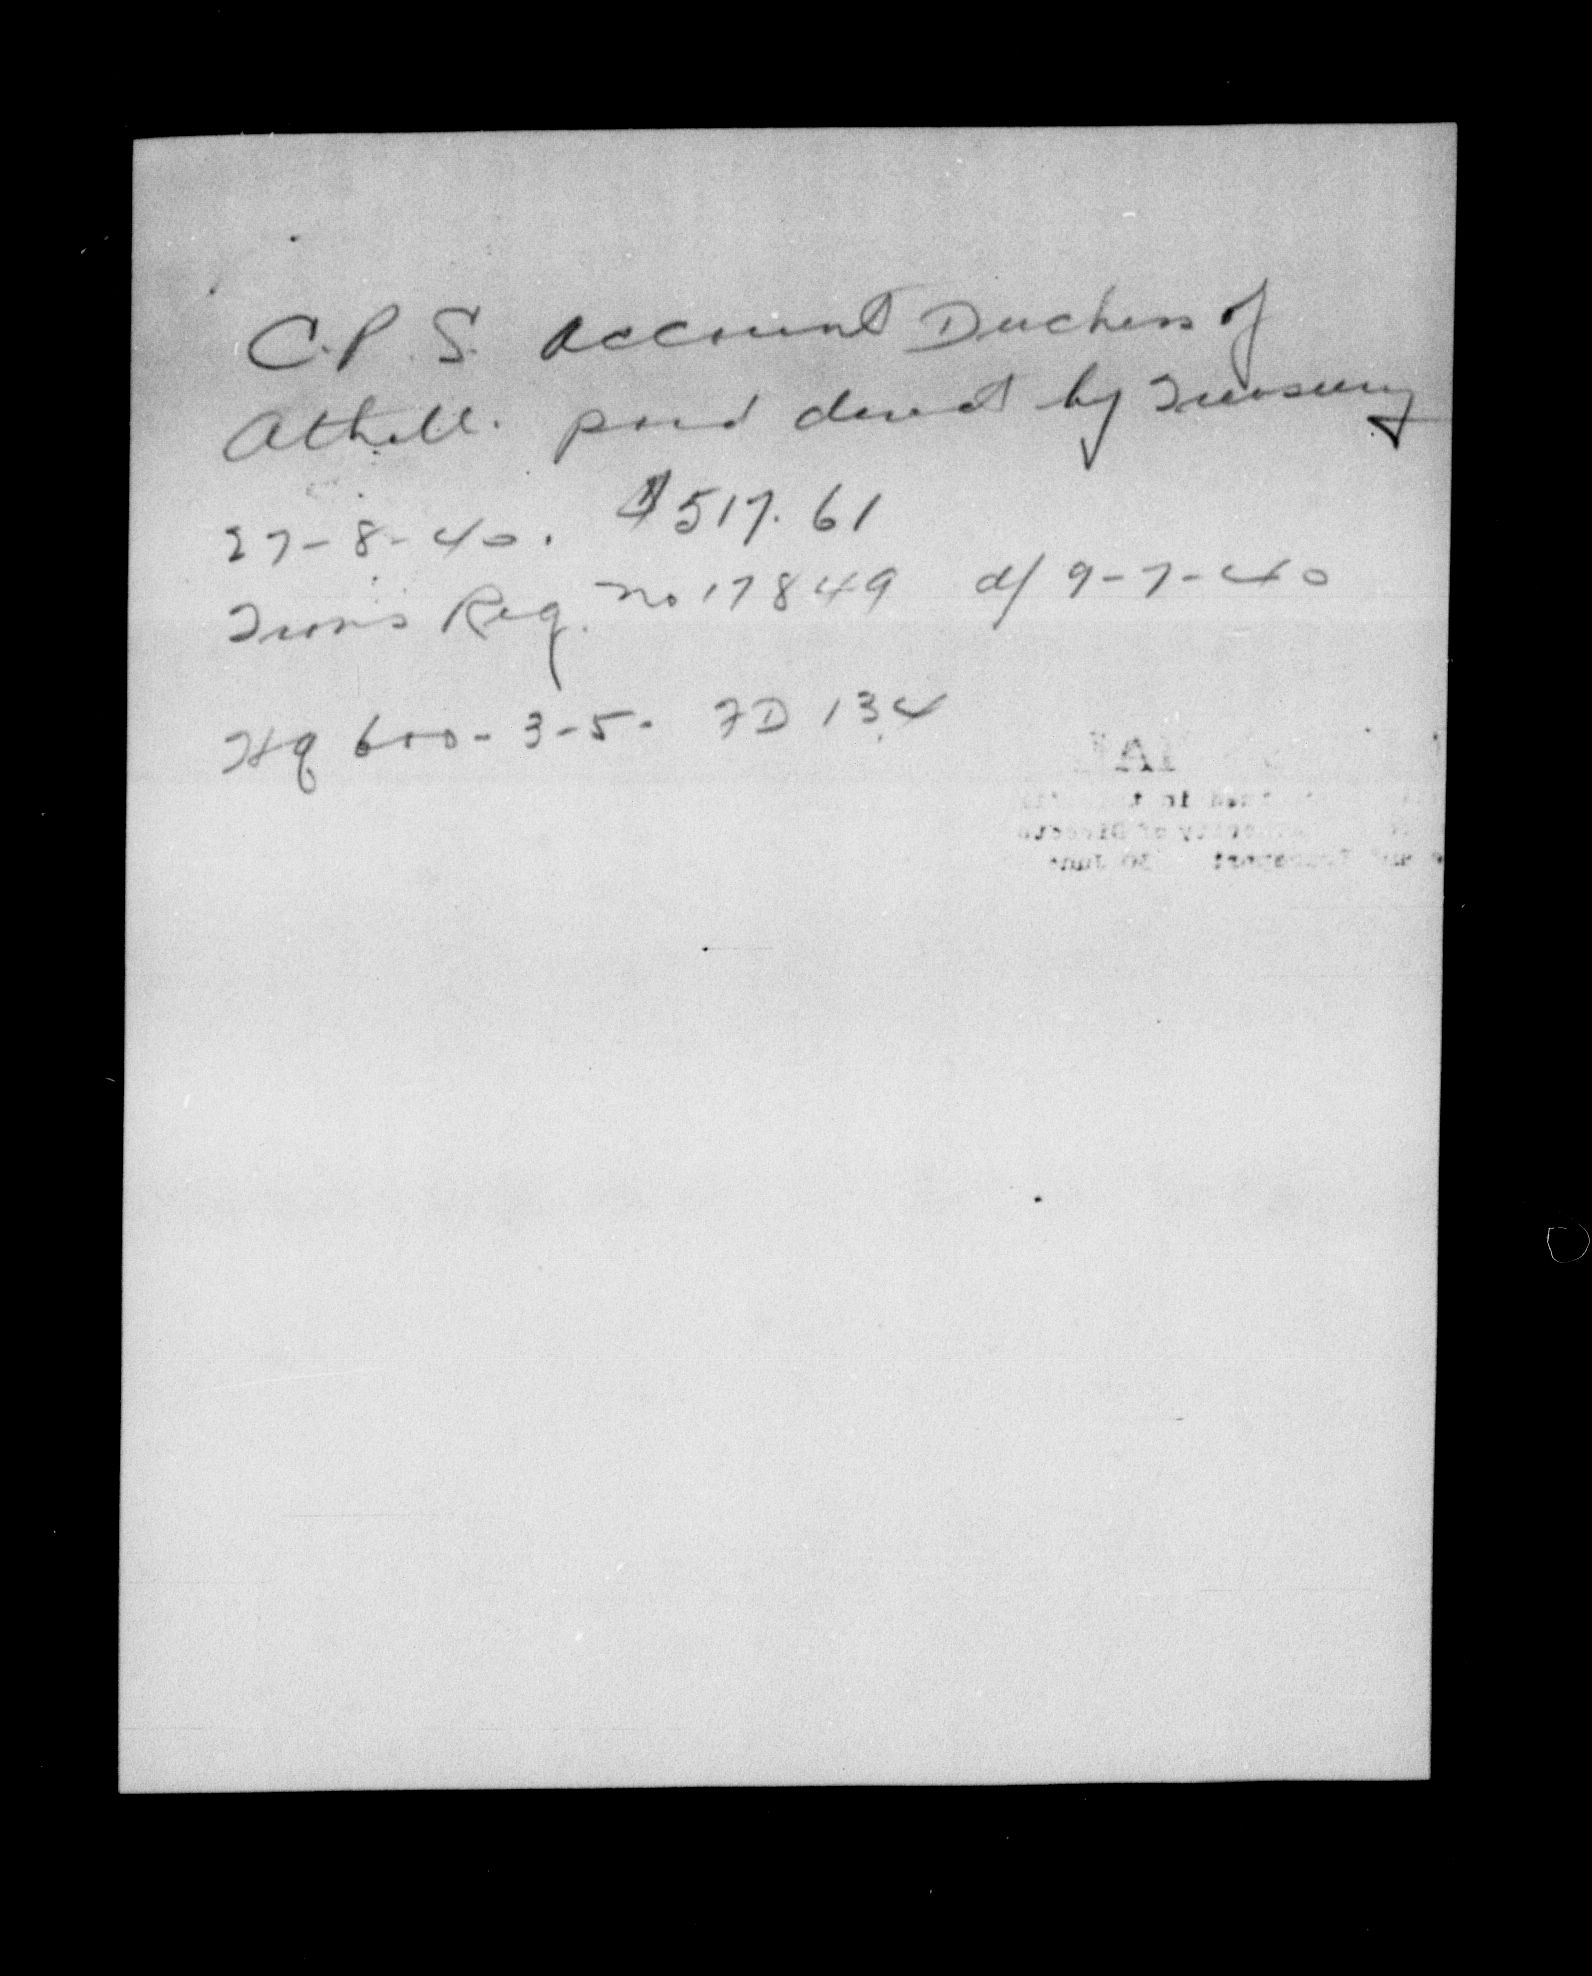 C.P.S. account Duchess of
Atholl. paid direct by Treasury
27-8-40. $517.61
Trans Req. No 17849 d/ 9-7-40
HQ 600-3-5. FD 134
in
of Direct
30 June